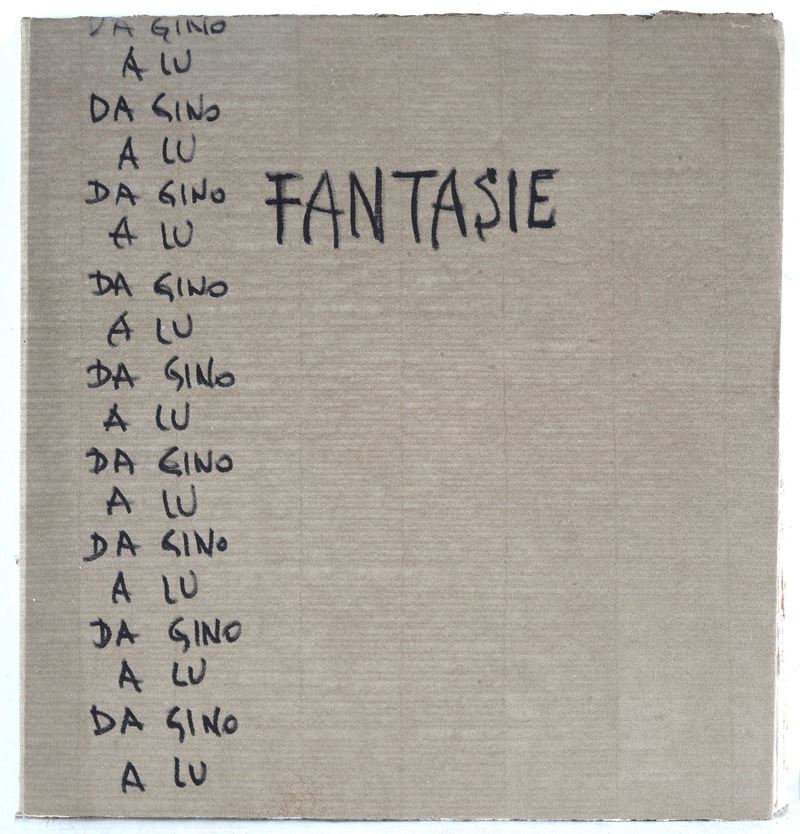 DA GINO
A LU
DA GINO
A LU
DA GINO
A LU
FANTASIE
DA GINO
A LU
DA GINO
A LU
DA GINO
A LU
DA GINO
A LU
DA GINO
A LU
DA GINO
A LU